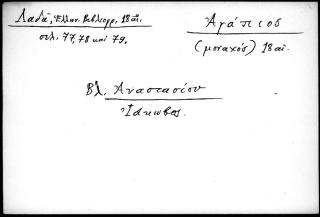 Λαδᾶ, Ἑλλην. Βιβλιογρ. 18 αἰ.
σελ. 77, 78 καὶ 79.
Ἀγάπιος
(μοναχός) 18 αἰ.
Βλ. Ἀναστασίου
Ἰάκωβος.